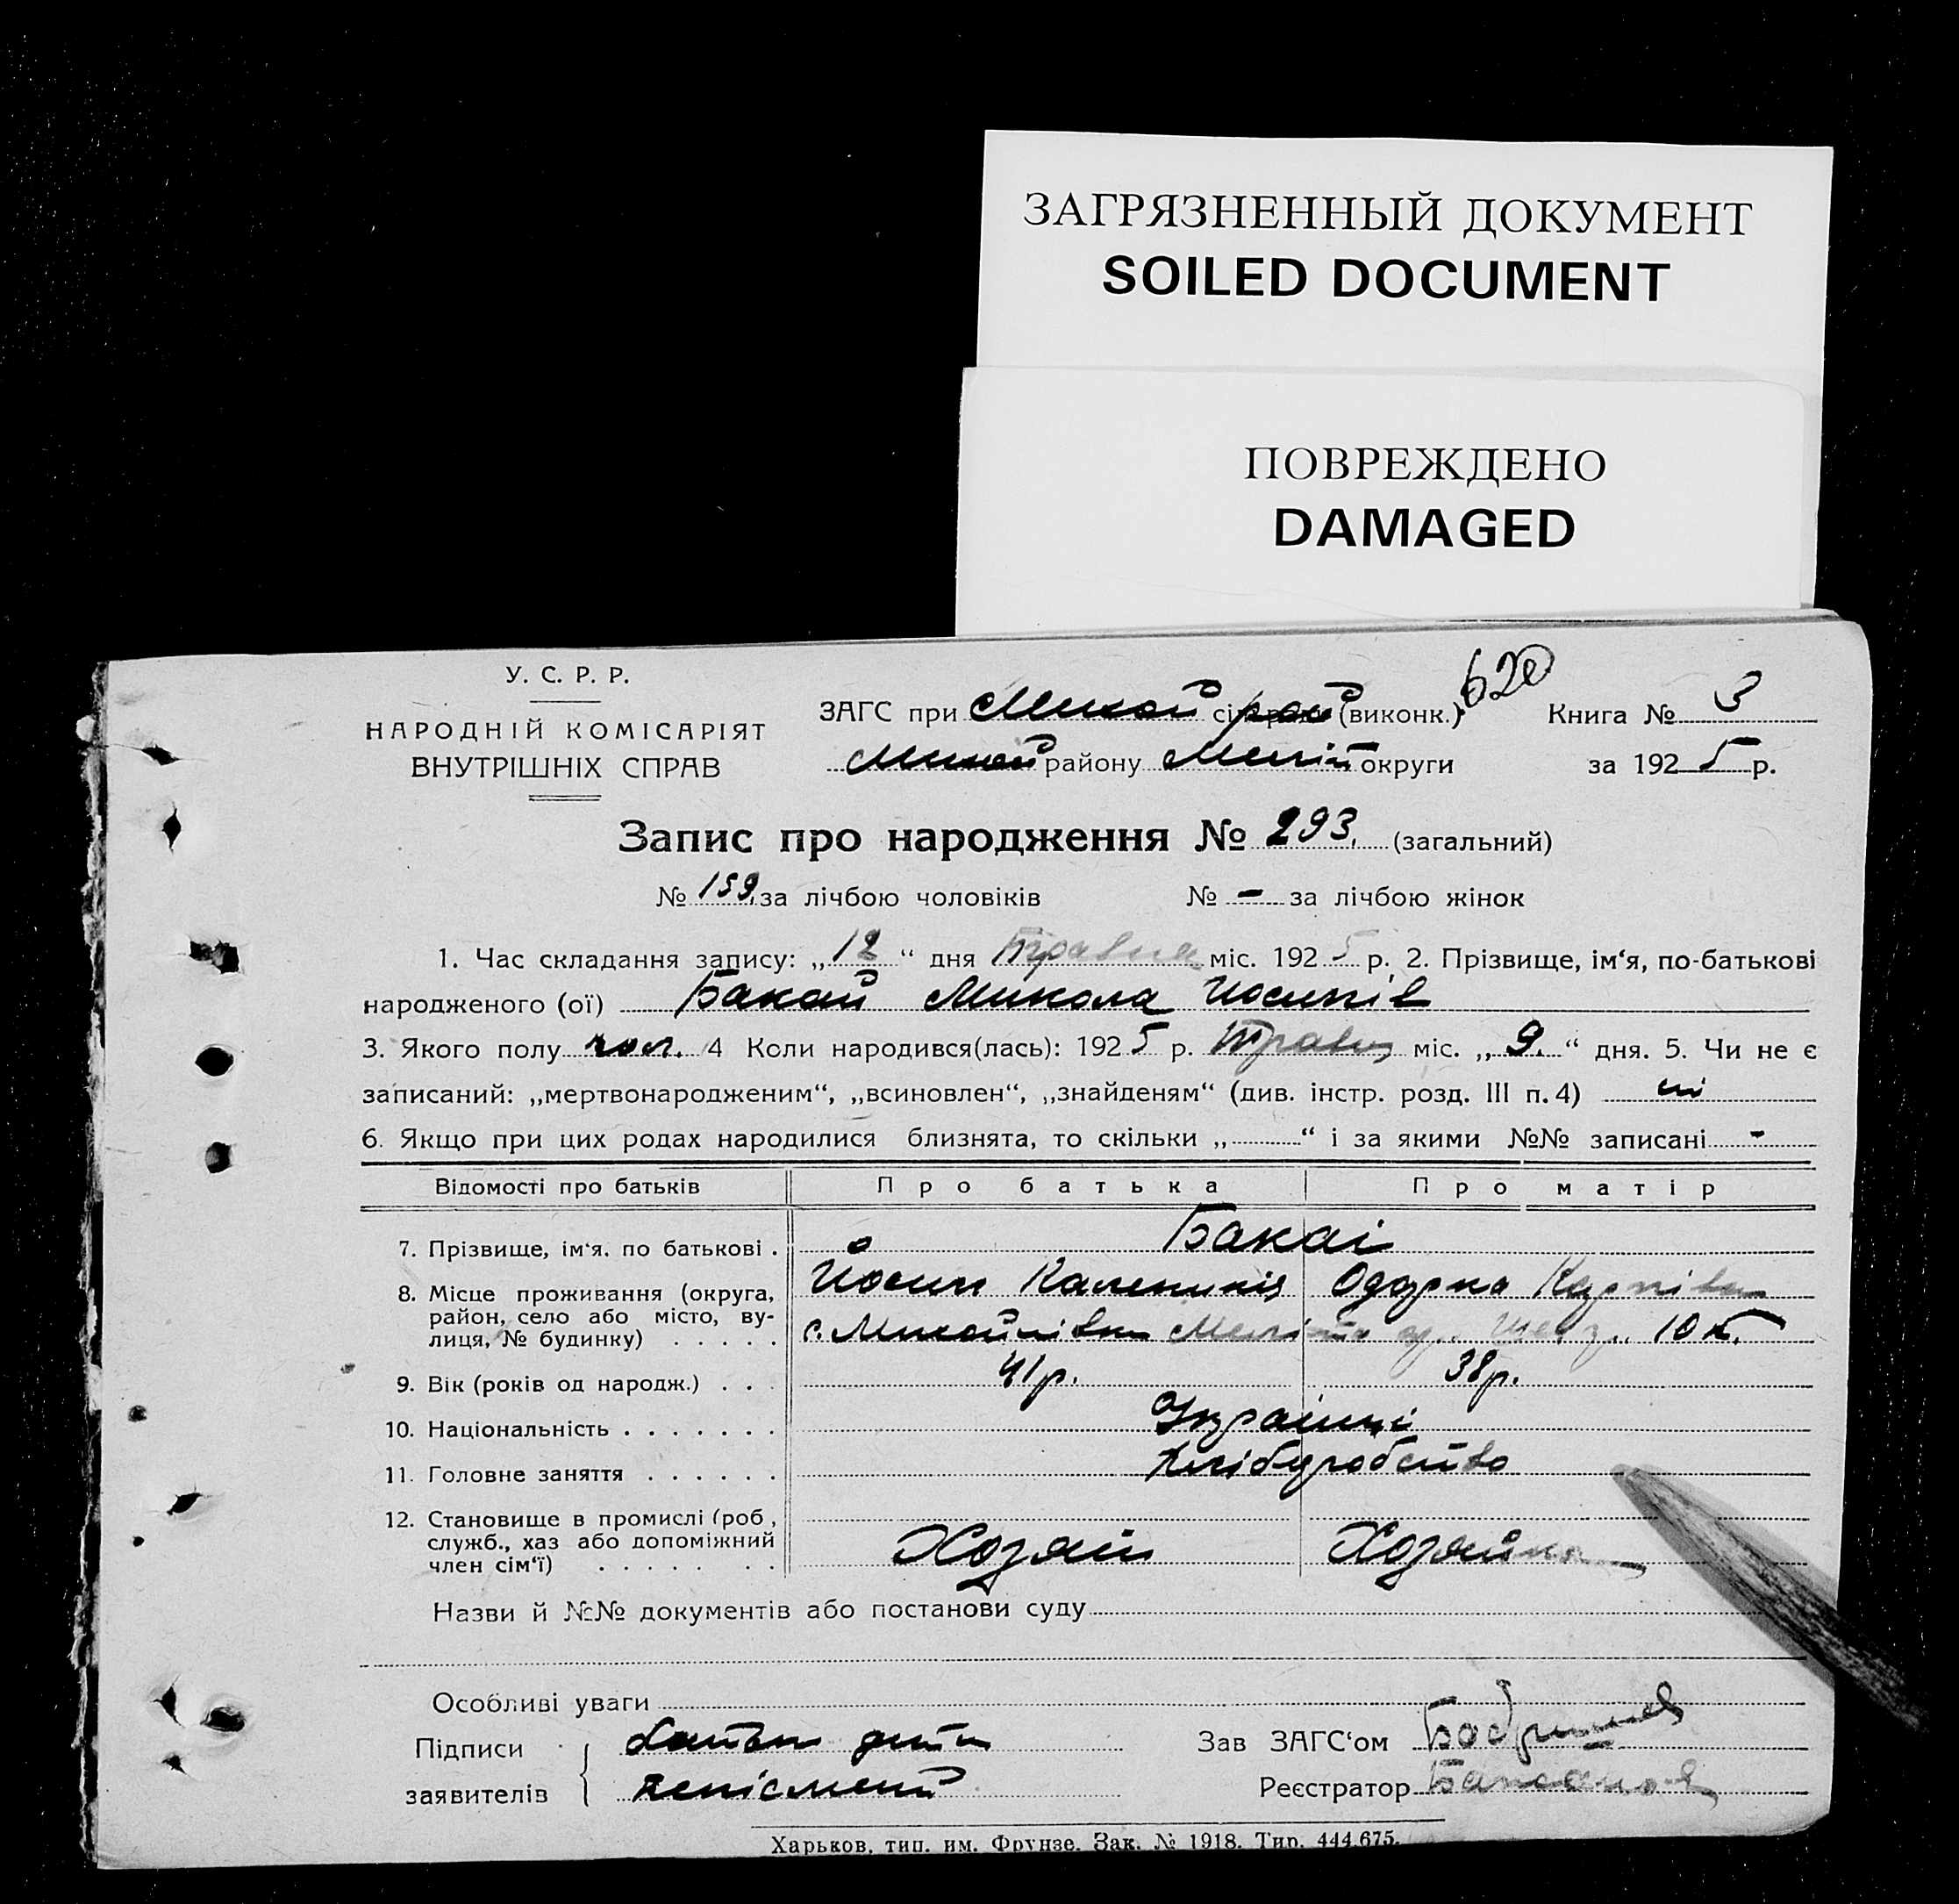 ЗАГРЯЗНЕННЫЙ ДОКУМЕНТ
SOILED DOCUMENT
ПОВРЕЖДЕНО
DAMAGED
620
У. С. Р. Р.
НАРОДНІЙ КОМІСАРІЯТ
ВНУТРІШНІХ СПРАВ
ЗАГС при Микой рай (виконк.) Книга № 3
Микой району Меліт округи за 1925 р.
Запис про народження № 293. (загальний)
№ 159. за лічбою чоловіків № - за лічбою жінок
1. Час складання запису: „12“ дня Травня міс. 1925 р. 2. Прізвище, ім‘я, по-батькові
народженого (ої) Бакай Микола Йосипів
3. Якого полу чол. 4 Коли народився(лась): 1925 р. Травня міс. „9.“ дня. 5. Чи не є
записаний: „мертвонародженим“, „всиновлен“, „знайденям“ (див. інстр. розд. III п. 4) ні
6. Якщо при цих родах народилися близнята, то скільки „ “ і за якими №№ записані -
Відомості про батьків Про батька Про матір
7. Прізвище, ім‘я. по батькові . Бакаі
8. Місце проживання (округа, район, село або місто, вулиця, № будинку) . . . . .
Йосип Калеників Одарка Карпівна
с. Михайлівка 10 к.
9. Вік (років од народж.) . . . 41 р. 38 р.
10. Національність . . . . . . . Українці
11. Головне заняття . . . . . . Хлібуробство
12. Становище в промислі (роб, служб., хаз або допоміжний член сім‘ї) . . . . . . . Хозяїн Хозяйка
Назви й №№ документів або постанови суду
Особливі уваги
Підписи заявителів { батьки дити
непісмені
Зав ЗАГС‘ом
Реєстратор
Харьков, тип. им. Фрунзе. Зак. № 1918. Тир. 444.675.